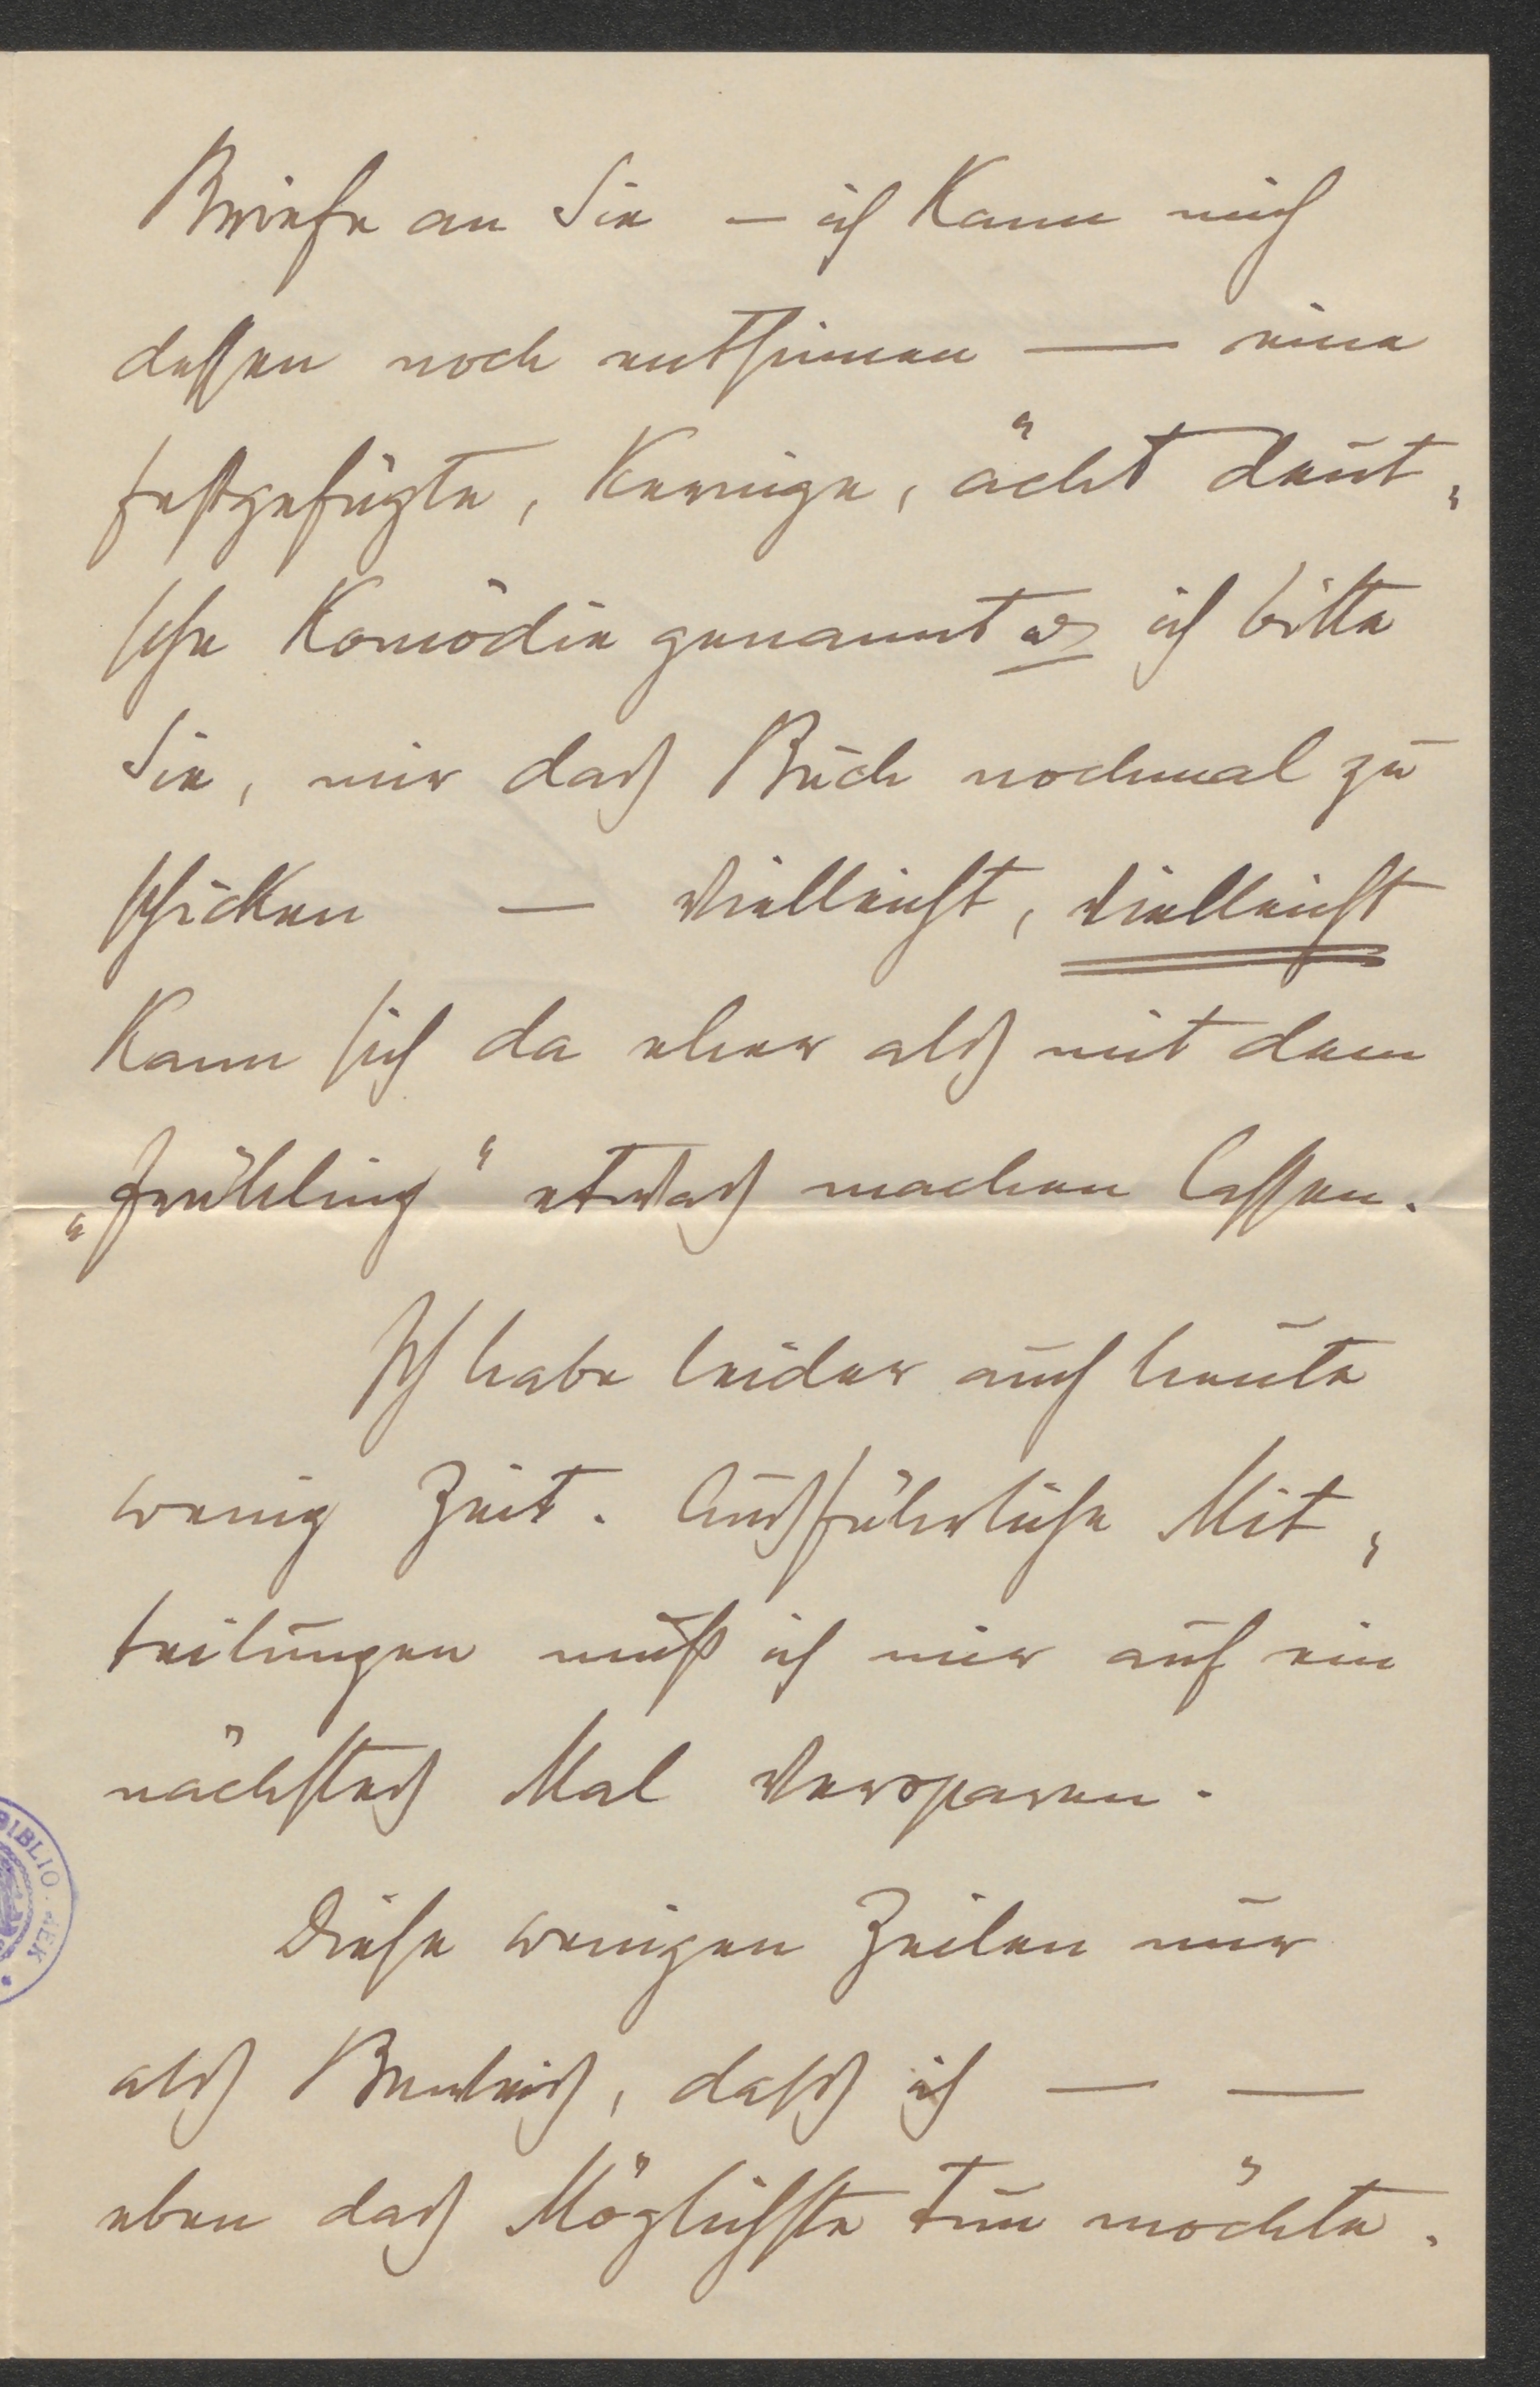 Briefe an Sie – ich kann mich
dessen noch entsinnen — eine
festgefügte, kernige, ächt deut-
sche Komödie genannt u. ich bitte
Sie, mir das Buch nochmal zu
schicken — vielleicht, vielleicht
kann sich da eher als mit dem
„Frühling“ etwas machen lassen.
Ich habe leider auch heute
wenig Zeit. Ausführliche Mit-
teilungen muß ich mir auf ein
nächstes Mal versparen.
Diese wenigen Zeilen nur
als Beweis, dass ich — —
eben das Möglichste tun möchte.
BIBLIO
EK